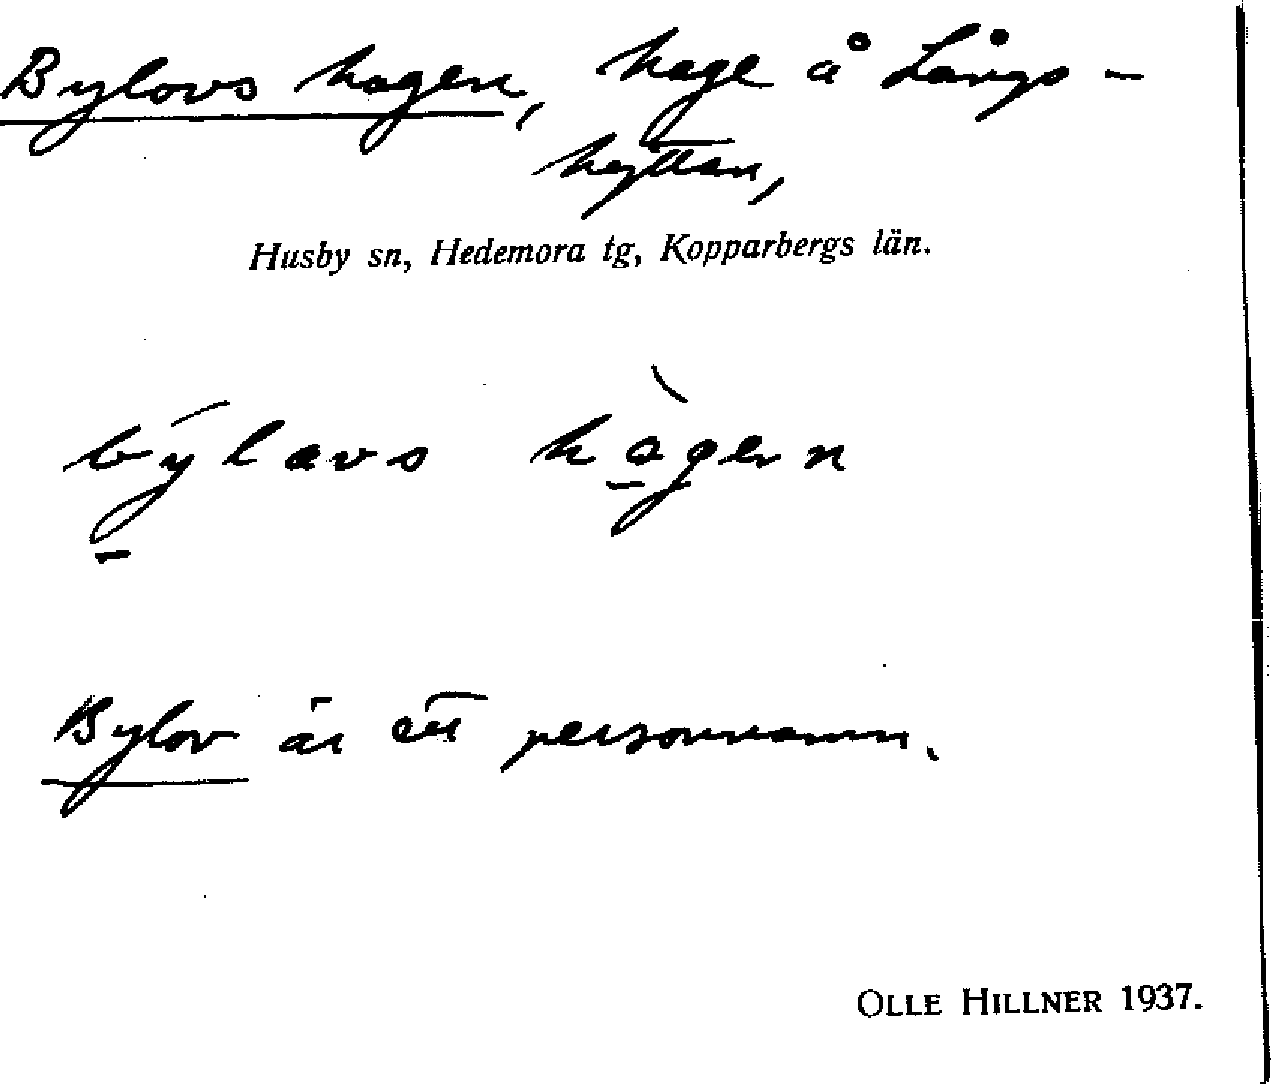 Bylovs hagen, hage å Långs-
hyttan,
Husby sn, Hedemora tg, Kopparbergs län.
býlavs hàgen
Bylov är ett personnamn.
OLLE HILLNER 1937.